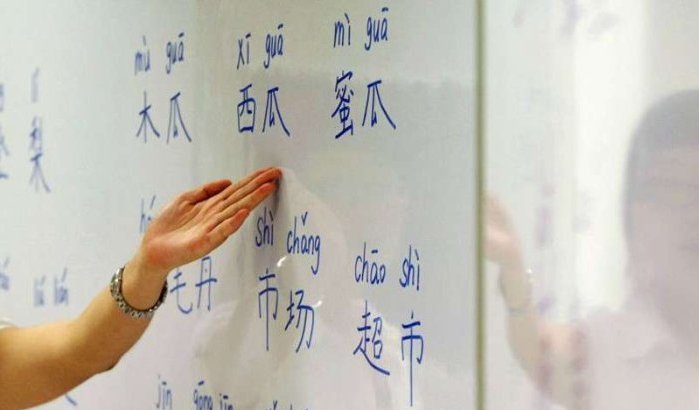 mù guā xī guā mì guā
梨 木瓜 西瓜 蜜瓜
shì chǎng chāo shì
毛丹 市场 超市
jīn gōng jīn